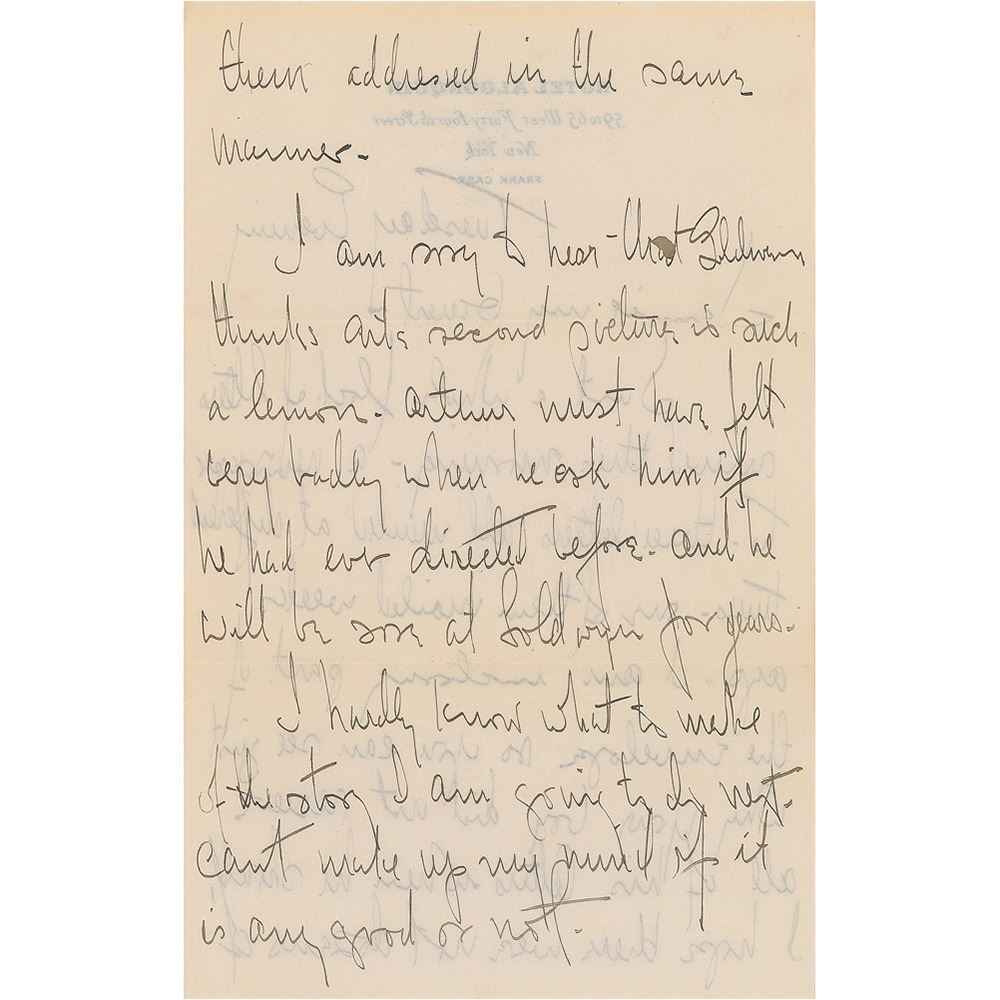 them addressed in the same
manner.
I am sorry to hear that Goldwyn
thinks Arts second picture is such
a lemon. Arthur must have felt
very badly when he ask him if
he had ever directed before. and he
will be sore at Goldwyn for years.
I hardly know what to make
of the story I am going to do next.
cant make up my mind if it
is any good or not.